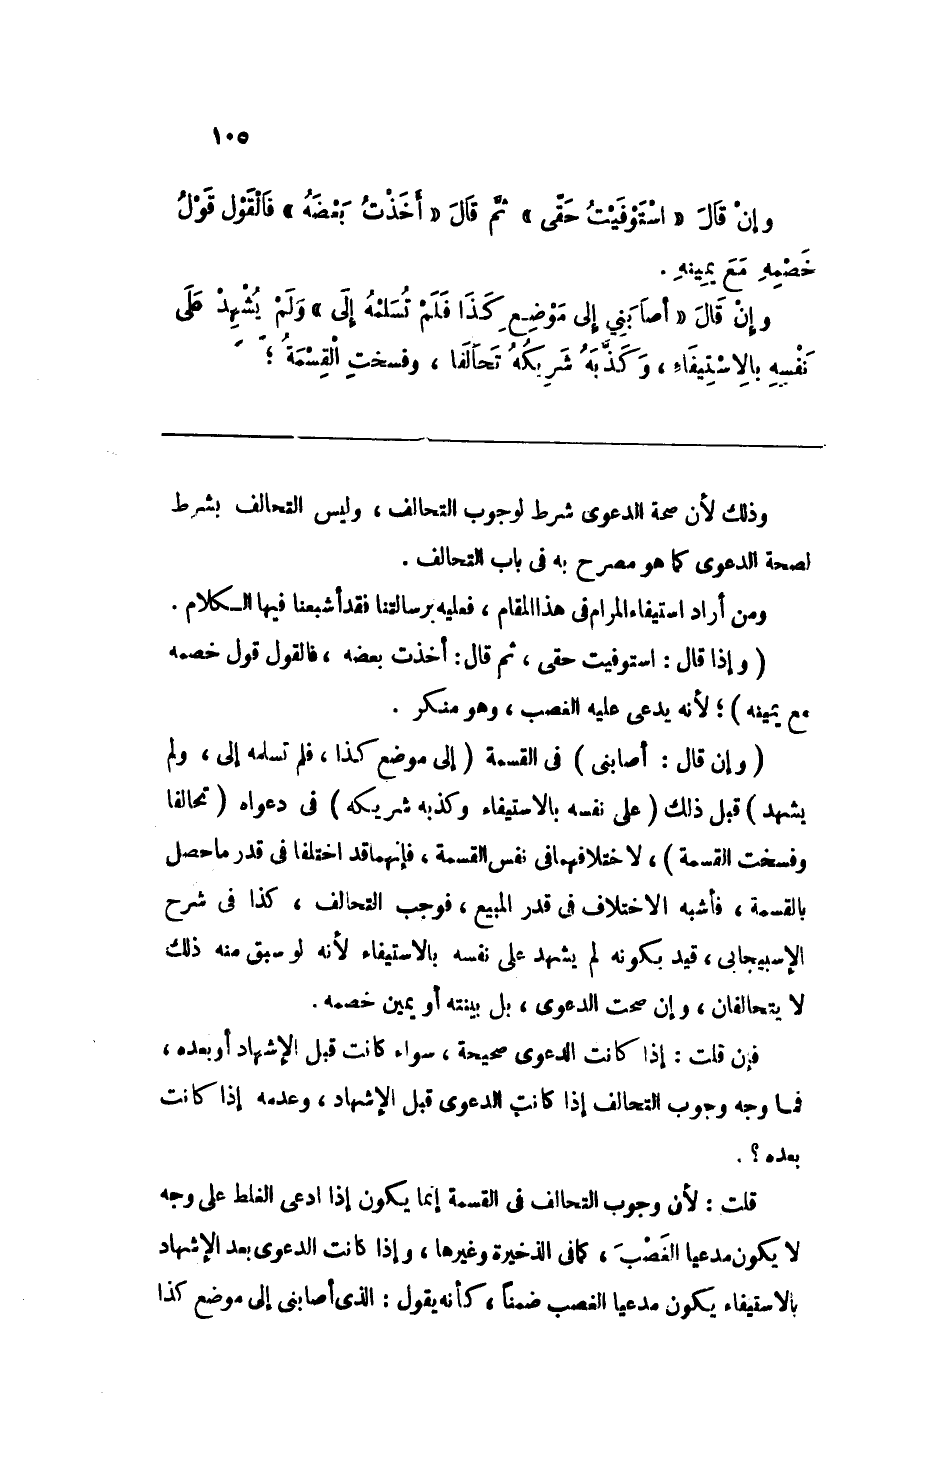 ١٠٥
وإنْ قَالَ « اسْتَوْفَيْتُ حَقَّى » ثُمَّ قَالَ « أَخَذْتُ بَعْضَهُ » فَالْقَوْل قَوْلُ
خَصْمِهِ مَعَ يَمِينهِ .
وإِنْ قَالَ « أصاَبَنِي إلى مَوْضِعِ كَذَا فَلَمْ تُسَلمْهُ إِلَى » وَلَمْ يُشْهِدْ عَلَى
نَفْسِهِ بالِاسْتِيفَاءِ ، وَكَذَّبَهُ شَرِيكُهُ تَحَالَفَا ، وفسخت الْقِسْمَةُ ؛
وذلك لأن صحة الدعوى شرط لوجوب التحالف ، وليس التحالف بشرط
لصحة الدعوى كما هو مصرح به فى باب التحالف .
ومن أراد استيفاء المرام فى هذا المقام ، فعليه برسالتنا فقد أشبعنا فيها الـكلام .
( وإذا قال : استوفيت حقى ، ثم قال : أخذت بعضه ، فالقول قول خصمه
مع يمينه ) ؛ لأنه يدعى عليه الغصب ، وهو منكر .
( وإن قال : أصابنى ) فى القسمة ( إلى موضع كذا ، فلم تسلمه إلى ، ولم
يشهد ) قبل ذلك ( على نفسه بالاستيفاء وكذبه شريكه ) فى دعواه ( تحالفا
وفسخت القسمة ) ، لاختلافهما فى نفس القسمة ، فإنهما قد اختلفا فى قدر ما حصل
بالقسمة ، فأشبه الاختلاف فى قدر المبيع ، فوجب التحالف ، كذا فى شرح
الإسبيجابى ، قيد بكونه لم يشهد على نفسه بالاستيفاء لأنه لو سبق منه ذلك
لا يتحالفان ، وإن صحت الدعوى ، بل بينته أو يمين خصمه .
فإن قلت : إذا كانت الدعوى صحيحة ، سواء كانت قبل الإشهاد أو بعده ،
فمـا وجه وجوب التحالف إذا كانت الدعوى قبل الإشهاد ، وعدمه إذا كانت
بعده ؟ .
قلت : لأن وجوب التحالف فى القسمة إنما يكون إذا ادعى الغلط على وجه
لا يكون مدعيا الغَصْبَ ، كما فى الذخيرة وغيرها ، وإذا كانت الدعوى بعد الإشهاد
بالاستيفاء يكون مدعيا الغصب ضمناً ، كأنه يقول : الذى أصابنى إلى موضع كذا